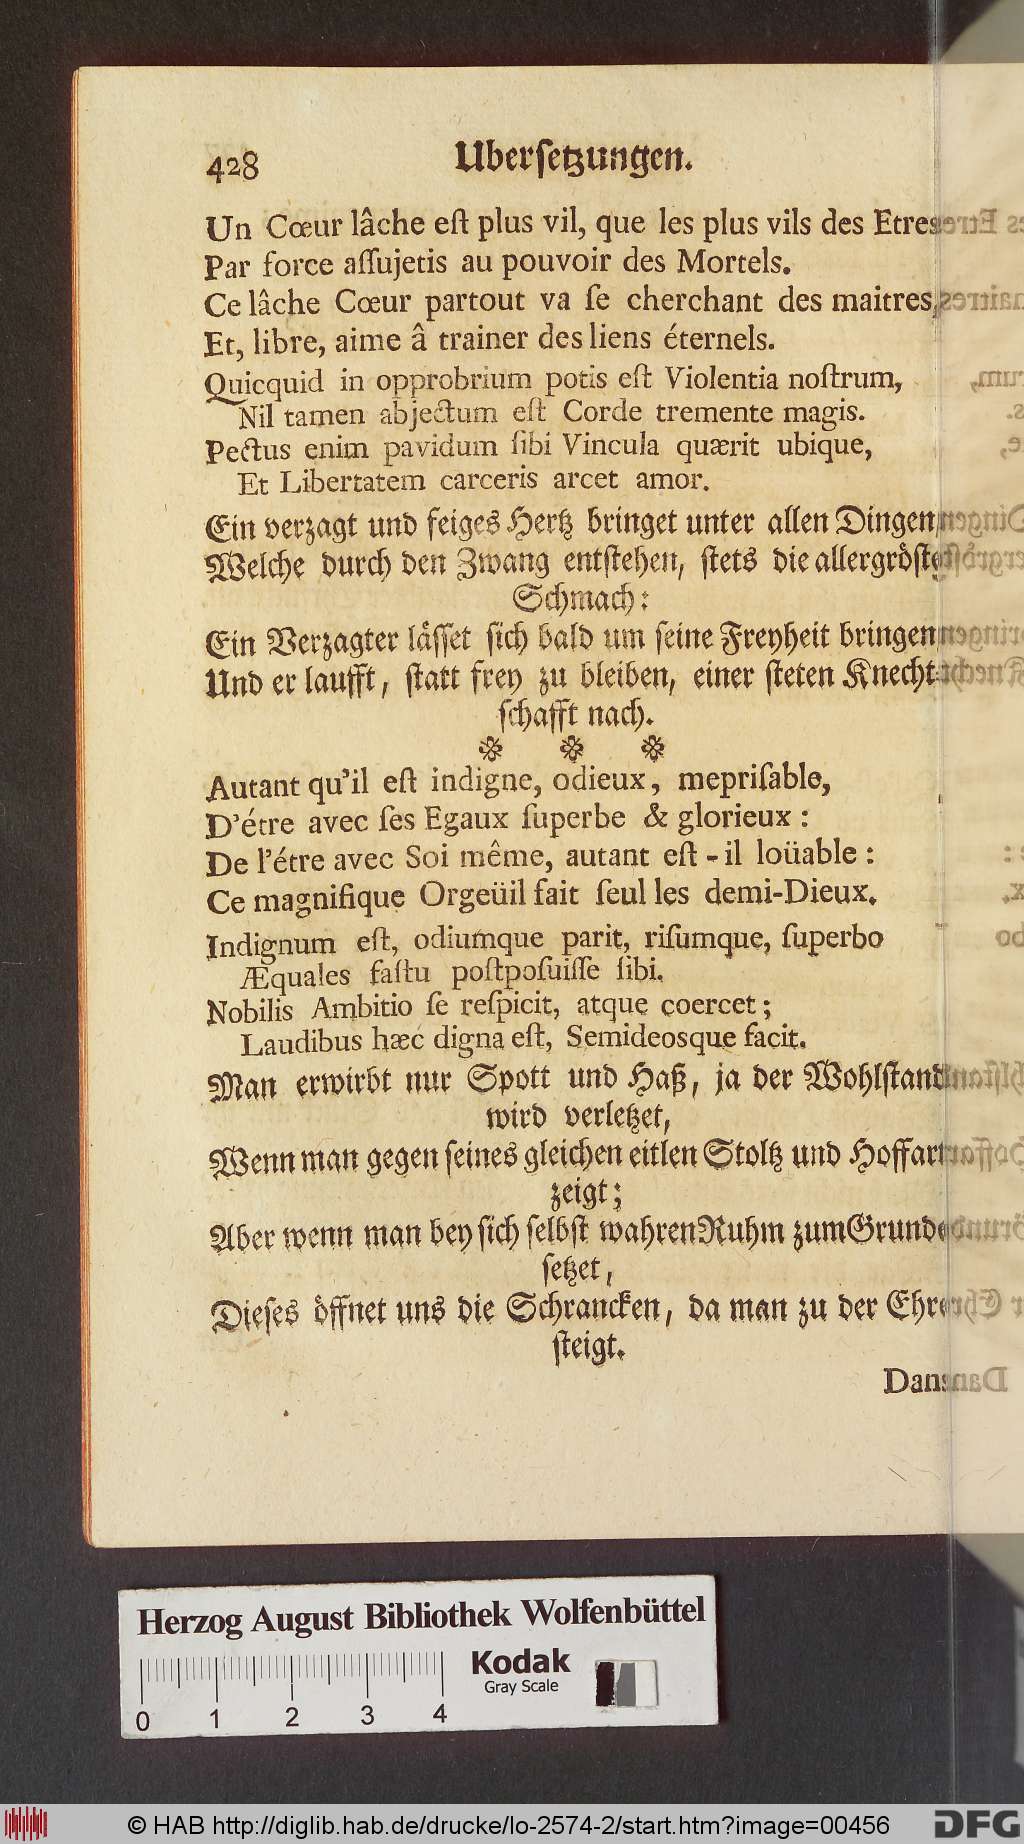 428 Ubersetzungen.
Un Cœur lâche eſt plus vil, que les plus vils des Etres
Par force aſſujetis au pouvoir des Mortels.
Ce lâche Cœur partout va ſe cherchant des maitres,
Et, libre, aime â trainer des liens éternels.
Quicquid in opprobrium potis eſt Violentia noſtrum,
Nil tamen abjectum eſt Corde tremente magis.
Pectus enim pavidum ſibi Vincula quærit ubique,
Et Libertatem carceris arcet amor.
Ein verzagt und feiges Hertz bringet unter allen Dingen,
Welche durch den Zwang entſtehen, ſtets die allergröſte
Schmach:
Ein Verzagter läſſet ſich bald um ſeine Freyheit bringen,
Und er laufft, ſtatt frey zu bleiben, einer ſteten Knecht-
ſchafft nach.
Autant qu'il eſt indigne, odieux, mepriſable,
D'étre avec ſes Egaux ſuperbe & glorieux :
De l'étre avec Soi même, autant eſt-il loüable :
Ce magnifique Orgeüil fait ſeul les demi-Dieux.
Indignum eſt, odiumque parit, riſumque, ſuperbo
Æquales faſtu poſtpoſuiſſe ſibi.
Nobilis Ambitio ſe reſpicit, atque coercet;
Laudibus hæc digna eſt, Semideosque facit.
Man erwirbt nur Spott und Haß, ja der Wohlſtand
wird verletzet,
Wenn man gegen ſeines gleichen eitlen Stoltz und Hoffart
zeigt;
Aber wenn man bey ſich ſelbſt wahren Ruhm zum Grunde
ſetzet,
Dieſes öffnet uns die Schrancken, da man zu der Ehre
ſteigt.
Dans
Herzog August Bibliothek Wolfenbüttel
Kodak
Gray Scale
0 1 2 3 4
© HAB http://diglib.hab.de/drucke/lo-2574-2/start.htm?image=00456
DFG